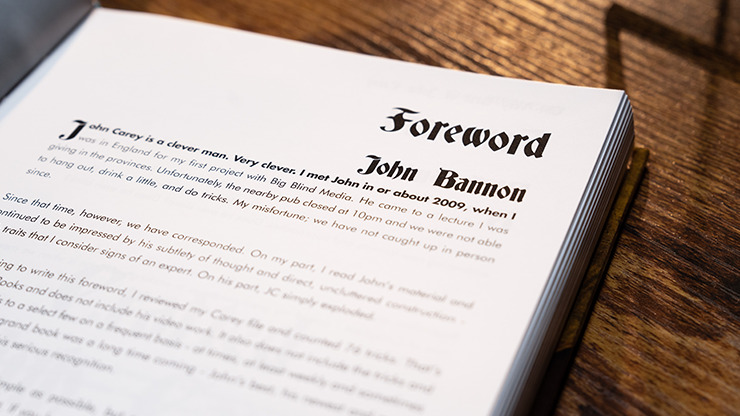 Foreword
John Bannon
John Carey is a clever man. Very clever. I met John in or about 2009, when I
was in England for my first project with Big Blind Media. He came to a lecture I was
giving in the provinces. Unfortunately, the nearby pub closed at 10pm and we were not able
to hang out, drink a little, and do tricks. My misfortune; we have not caught up in person
since.
Since that time, however, we have corresponded. On my part, I read John's material and
continued to be impressed by his subtlety of thought and direct, uncluttered construction -
traits that I consider signs of an expert. On his part, JC simply exploded.
ing to write this foreword, I reviewed my Carey file and counted 76 tricks. That's
Books and does not include his video work. It also does not include the tricks and
s to a select few on a frequent basis - at times, at least weekly, and sometimes
grand book was a long time coming - John's best, his newest and
is serious recognition.
mple as possible, but